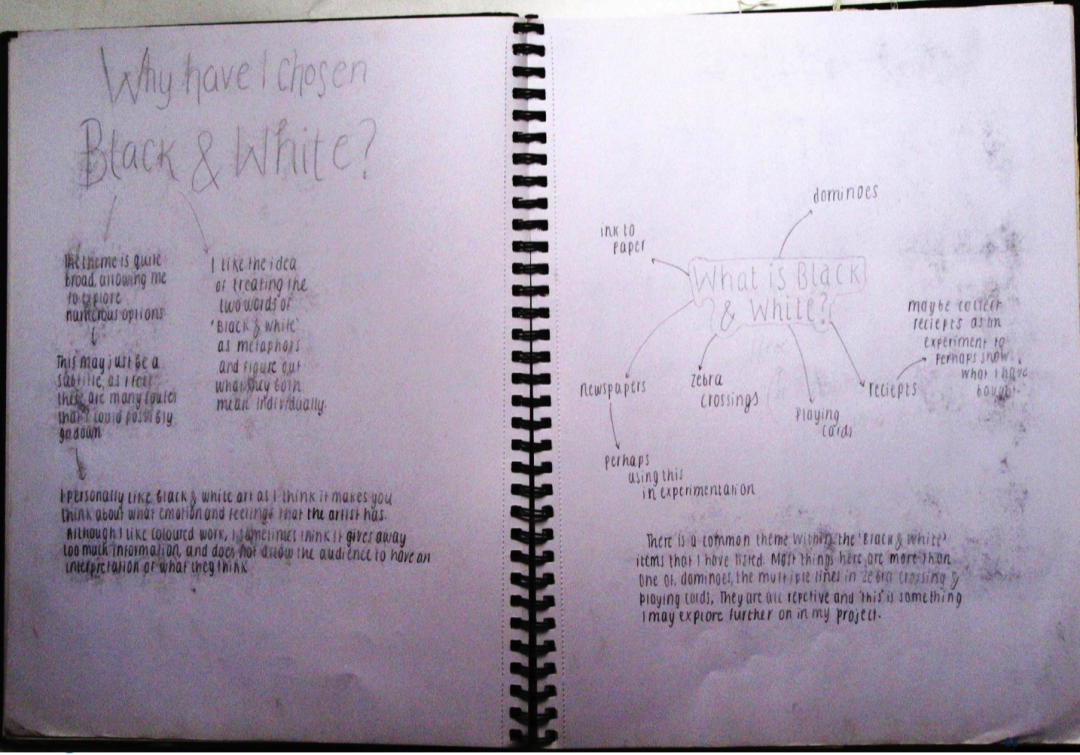 Why have I chosen
Black & White?
The theme is quite
broad, allowing me
to explore
numerous options
This may just be a
subtitle, as I feel
there are many routes
that I could possibly
go down
I like the idea
of treating the
two words of
'Black & white'
as metaphors
and figure out
what they both
mean individually.
I personally like Black & white art as I think it makes you
think about what emotion and feelings that the artist has.
Although I like coloured work, I sometimes think it gives away
too much information, and does not allow the audience to have an
interpretation of what they think
dominoes
ink to
paper
What is Black
& White?
newspapers
zebra
crossings
Playing
cards
reciepts
maybe collect
reciepts as an
experiment to
perhaps show
what I have
bought.
perhaps
using this
in experimentation
There is a common theme within the 'Black & White'
items that I have listed. Most things here are more than
one of, dominoes, the multiple lines in zebra crossing &
playing cards, They are all repetive and this is something
I may explore further on in my project.